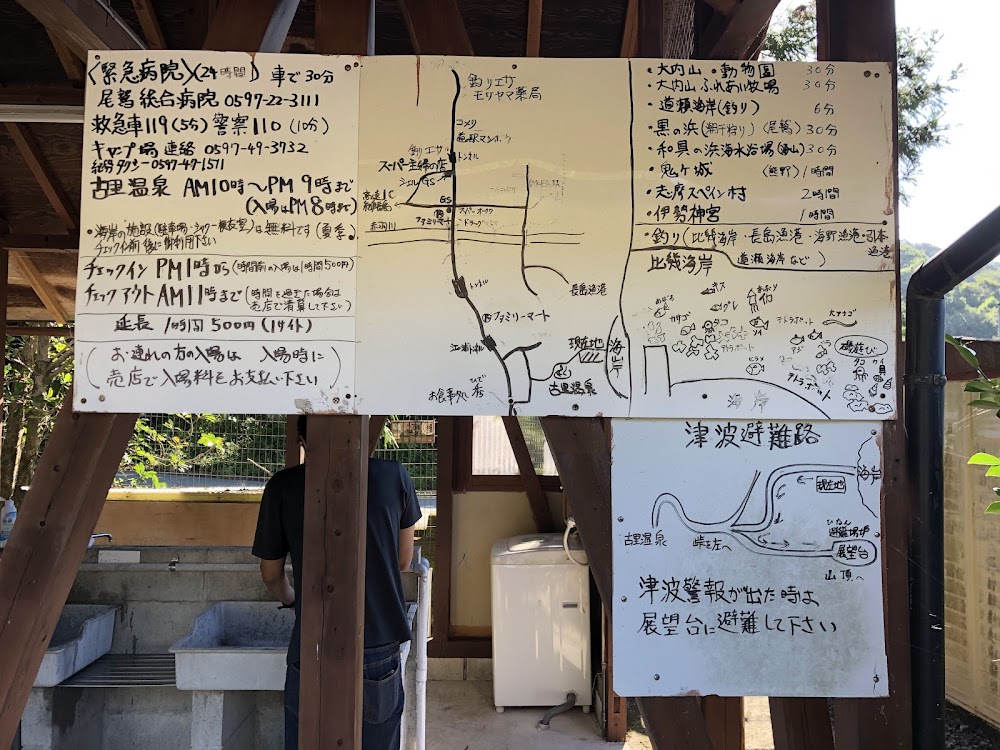 〈緊急病院〉(24時間) 車で30分
尾鷲総合病院 0597-22-3111
救急車119(5分) 警察110 (10分)
キャンプ場 連絡 0597-49-3732
0597-47-1571
古里温泉 AM10時〜PM9時まで
(入場はPM8時まで)
・海岸の施設(駐車場・シャワー・更衣室)は無料です(夏季)
チェックイン PM1時から(時間前の入場は1時間500円)
チェックアウトAM11時まで(時間を過ぎた場合は
売店で清算して下さい)
延長 1時間 500円(1サイト)
(お連れの方の入場は 入場時に
売店で入場料をお支払い下さい)
釣りエサ
モリヤマ薬局
コメリ
トンネル
釣りエサ
スーパー主婦の店
シェルGS
GS
スーパーオークワ
ファミリーマート
ドラッグ
赤羽川
トンネル
長島漁港
ファミリーマート
江浦トンネル
現在地
海岸
古里温泉
お食事処 秀
ひで
・大内山・動物園 30分
・大内山ふれあい牧場 30分
・道瀬海岸(釣り) 6分
・黒の浜(潮干狩り)(尾鷲) 30分
・和具の浜海水浴場(海山) 30分
・鬼ヶ城 (熊野) 1時間
・志摩スペイン村 2時間
・伊勢神宮 1時間
・釣り(比幾海岸・長島漁港・海野漁港・引本漁港
道瀬海岸など)
比幾海岸
キス
グレ
イカ
カサゴ
タコ
テトラポット
テトラポット
アジ
ヒラメ
テトラポット
磯遊び
タコ
カイ
海岸
津波避難路
海岸
現在地
ひなん
避難場所
展望台
古里温泉
峠を左へ
山頂へ
津波警報が出た時は
展望台に避難して下さい